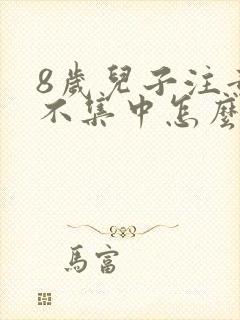 8歲兒子注
不集中怎麼
馬富